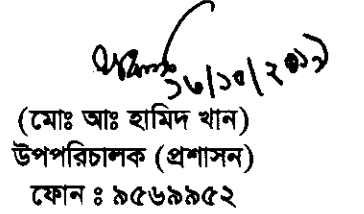 ১৬/১০/২০১৯
(মোঃ আঃ হামিদ খান)
উপপরিচালক (প্রশাসন)
ফোন ঃ ৯৫৬৯৯৫২